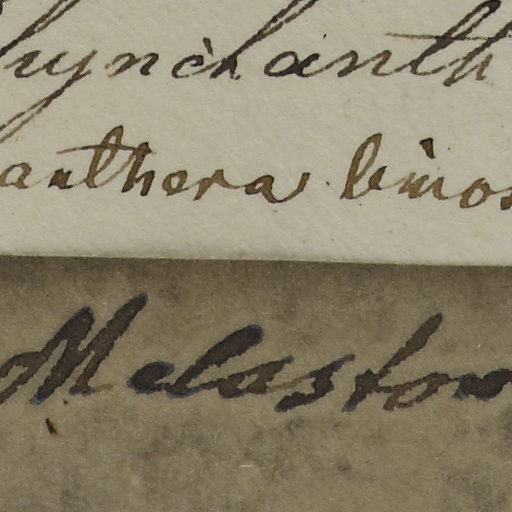 hynchanth
anthera limos
Melastom